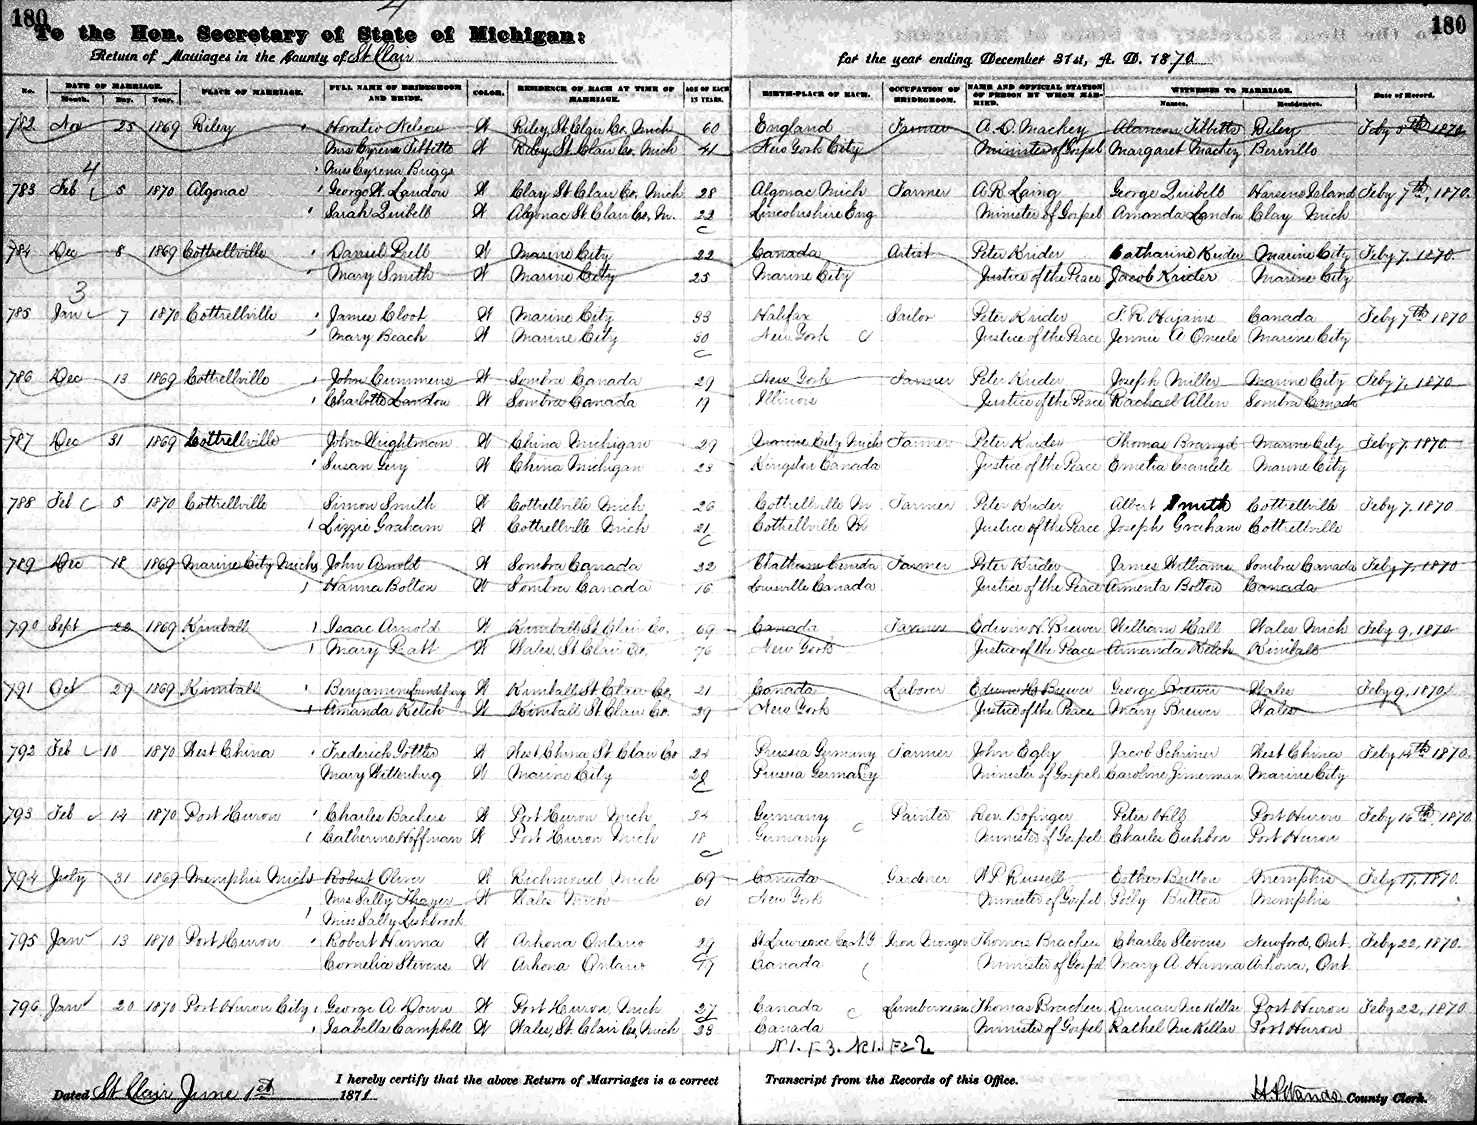 180
180
To the Hon. Secretary of State of Michigan:
Return of Marriages in the County of St Clair for the year ending December 31st, A. D. 1870
No. DATE OF MARRIAGE. Month. Day. Year. PLACE OF MARRIAGE. FULL NAME OF BRIDEGROOM AND BRIDE. COLOR. RESIDENCE OF EACH AT TIME OF MARRIAGE. AGE OF EACH IN YEARS. BIRTH-PLACE OF EACH. OCCUPATION OF BRIDEGROOM. NAME AND OFFICIAL STATION OF PERSON BY WHOM MARRIED. WITNESSES TO MARRIAGE. Names. Residences. Date of Record.
782 Nov 25 1869 Riley Horatio Nelson W Riley, St Clair Co, Mich 60 England Farmer A. D. Mackey Alancon Tibbitts Riley Feby 5th 1870
Mrs Cyrena Tibbitts W Riley St Clair Co, Mich 41 New York City Minister of Gospel Margaret Mackey Berville
Miss Cyrena Buggs
4
783 Feb 5 1870 Algonac George W. Landon W Clay St Clair Co, Mich 28 Algonac Mich Farmer A. R. Laing George Quibell Harsens Island Feby 7th, 1870.
Sarah Quibell W Algonac St Clair Co, M. 23 Lincolnshire Eng Minister of Gospel Amanda Landon Clay Mich
784 Dec 8 1869 Cottrellville Daniel Bell W Marine City 22 Canada Artist Peter Krider Catharine Krider Marine City Feby 7, 1870
Mary Smith W Marine City 25 Marine City Justice of the Peace Jacob Krider Marine City
3
785 Jan 7 1870 Cottrellville James Cloot W Marine City 33 Halifax Sailor Peter Krider Canada Feby 7th 1870
Mary Beach W Marine City 30 New York Justice of the Peace Jennie A Oneele Marine City
786 Dec 13 1869 Cottrellville John Cummens W Sombra Canada 29 New York Farmer Peter Krider Joseph Miller Marine City Feby 7, 1870
Charlotte Landon W Sombra Canada 19 Illinois Justice of the Peace Rachael Allen Sombra Canada
787 Dec 31 1869 Cottrellville John Wightman W China Michigan 29 Marine City Mich Farmer Peter Krider Thomas Marine City Feby 7, 1870
Susan Gery W China Michigan 23 Kingston Canada Justice of the Peace Marine City
788 Feb 5 1870 Cottrellville Simon Smith W Cottrellville Mich 26 Cottrellville M Farmer Peter Krider Albert Smith Cottrellville Feby 7, 1870
Lizzie Graham W Cottrellville Mich 21 Cottrellville M Justice of the Peace Joseph Graham Cottrellville
789 Dec 18 1869 Marine City Mich John Arnold W Sombra Canada 22 Chatham Canada Farmer Peter Krider James Williams Sombra Canada Feby 7, 1870
Hanna Bolton W Sombra Canada 16 Louisville Canada Justice of the Peace Amenta Bolton Canada
790 Sept 22 1869 Kimball Isaac Arnold W Kimball St Clair Co. 69 Canada Farmer Edwin H. Brewer William Hall Wales Mich Feby 9, 1870
Mary Pratt W Wales, St Clair Co. 76 New York Justice of the Peace Amanda Kelch Kimball
791 Oct 29 1869 Kimball Benjamin W Kimball St Clair Co. 21 Canada Laborer Edwin H Brewer George Brewer Wales Feby 9, 1870
Amanda Kelch W Kimball St Clair Co. 29 New York Justice of the Peace Mary Brewer Wales
792 Feb 10 1870 West China Frederich W West China St Clair Co 24 Prussia Germany Farmer John Egly Jacob Schriner West China Feby 14th 1870.
Mary Wittenburg W Marine City 20 Prussia Germany Minister of Gospel Caroline Jimerman Marine City
793 Feb 14 1870 Port Huron Charles Backers W Port Huron Mich 24 Germany Painter Rev. Bofinger Peter Hill Port Huron Feby 16th, 1870.
Catherine Hoffman W Port Huron Mich 18 Germany Minister of Gospel Charles Port Huron
794 July 31 1869 Memphis Mich Robert Oliver W Richmond Mich 69 Canada Gardener W. P. Russell Esther Button Memphis Feby 17, 1870.
Mrs Sally Thayer W Wales Mich 61 New York Minister of Gospel Polly Button Memphis
Miss Sally
795 Jan 13 1870 Port Huron Robert Hanna W Arkona Ontario 29 St Lawrence Co N.Y Iron Monger Thomas Bracken Charles Stevens Newford, Ont. Feby 22, 1870.
Cornelia Stevens W Arkona Ontario 19 Canada Minister of Gospel Mary A. Hanna Arkona, Ont
796 Jan 20 1870 Port Huron City George A Down W Port Huron, Mich 27 Canada Lumberman Thomas Bracken Duncan McKellar Port Huron Feby 22, 1870.
Isabella Campbell W Wales, St Clair Co, Mich 23 Canada Minister of Gospel Rathel McKellar Port Huron
I hereby certify that the above Return of Marriages is a correct Transcript from the Records of this Office.
Dated St Clair June 1st 1871 County Clerk.